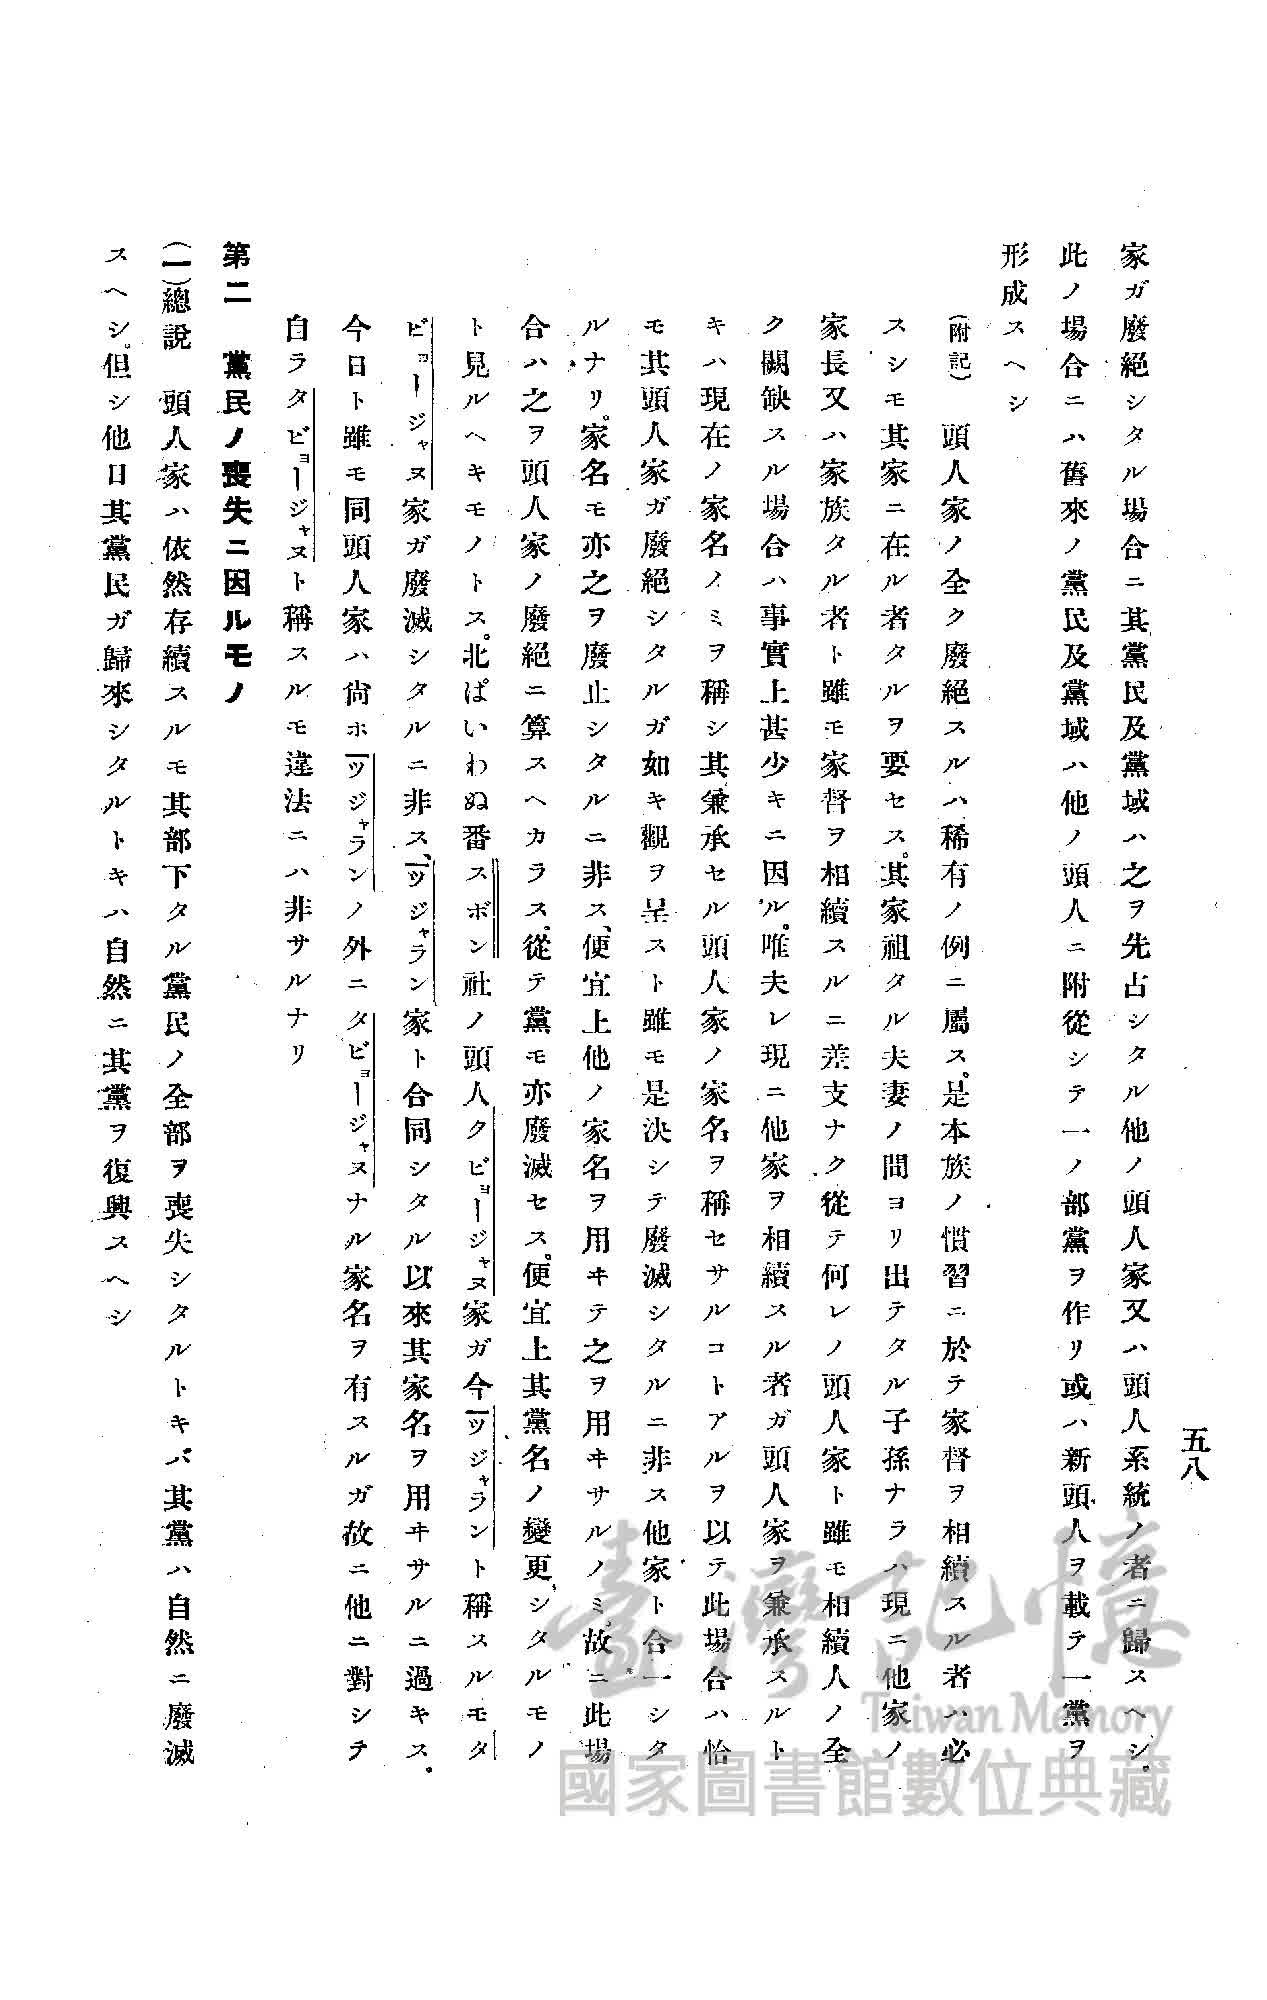 五八
家ガ廢絶シタル場合ニ其黨民及黨域ハ之ヲ先占シタル他ノ頭人家又ハ頭人系統ノ者ニ歸スヘシ。
此ノ場合ニハ舊來ノ黨民及黨域ハ他ノ頭人ニ附從シテ一ノ部黨ヲ作リ或ハ新頭人ヲ載テ一黨ヲ
形成スヘシ
(附記) 頭人家ノ全ク廢絶スルハ稀有ノ例ニ屬ス。是本族ノ慣習ニ於テ家督ヲ相續スル者ハ必
スシモ其家ニ在ル者タルヲ要セス。其家祖タル夫妻ノ間ヨリ出テタル子孫ナラハ現ニ他家ノ
家長又ハ家族タル者ト雖モ家督ヲ相續スルニ差支ナク從テ何レノ頭人家ト雖モ相續人ノ全
ク闕缺スル場合ハ事實上甚少キニ因ル。唯夫レ現ニ他家ヲ相續スル者ガ頭人家ヲ兼承スルト
キハ現在ノ家名ノミヲ稱シ其兼承セル頭人家ノ家名ヲ稱セサルコトアルヲ以テ此場合ハ恰
モ其頭人家ガ廢絶シタルガ如キ觀ヲ呈スト雖モ是決シテ廢滅シタルニ非ス他家ト合一シタ
ルナリ。家名モ亦之ヲ廢止シタルニ非ス、便宜上他ノ家名ヲ用ヰテ之ヲ用ヰサルノミ。故ニ此場
合ハ之ヲ頭人家ノ廢絶ニ算スヘカラス。從テ黨モ亦廢滅セス。便宜上其黨名ノ變更シタルモノ
ト見ルヘキモノトス。北ぱいわぬ番スボン社ノ頭人クビョージャヌ家ガ今ッジャラント稱スルモタ
ビョージャヌ家ガ廢滅シタルニ非ス、ッジャラン家ト合同シタル以來其家名ヲ用ヰサルニ過キス。
今日ト雖モ同頭人家ハ尙ホッジャランノ外ニタビョージャヌナル家名ヲ有スルガ故ニ他ニ對シテ
自ラタビョージャヌト稱スルモ違法ニハ非サルナリ
第二 黨民ノ喪失ニ因ルモノ
(一)總說 頭人家ハ依然存續スルモ其部下タル黨民ノ全部ヲ喪失シタルトキバ其黨ハ自然ニ廢滅
スヘシ。但シ他日其黨民ガ歸來シタルトキハ自然ニ其黨ヲ復興スヘシ
臺灣記憶
Taiwan Memory
國家圖書館數位典藏